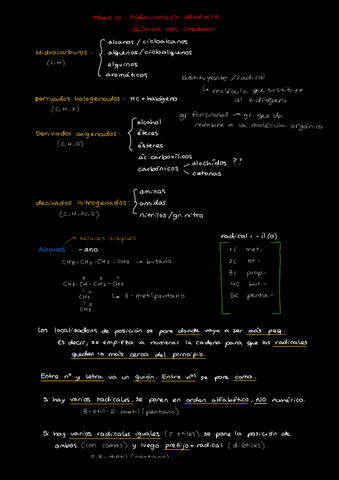 TEMA 10: FORMULACIÓN ORGÁNICA
QUÍMICA DEL CARBONO
Hidrocarburos:
(C,H)
alcanos/cicloalcanos
alquenos/cicloalquenos
alquinos
aromáticos
sustituyente/radical
↳ molécula que sustituye
al hidrógeno
Derivados halogenados: HC + halógeno
(C, H, X)
gr funcional → gr. que da
nombre a la molécula orgánica
Derivados oxigenados:
(C, H, O)
alcohol
éteres
ésteres
ác. carboxílicos
carbonínicos
alochídos ??
cetonas
derivados nitrogenados:
(C, H, N, O)
aminas
amidas
nitrilos/gr. nitro
→ enlaces simples
Alcanos - ano
CH₃ - CH₂ - CH₂ - CH₃ → butano
CH₃ - CH - CH₂ - CH₂ - CH₃
CH₂
CH₃
↳ 3-metilpentano
radical: -il(o)
1C met-
2C et-
3C prop-
4C but-
5C penta-
Los localizadores de posición se pone donde vaya a ser más peq.
Es decir, se empieza a numerar la cadena para que los radicales
queden lo más cerca del principio.
Entre nº y letra va un guión. Entre nos se pone coma.
Si hay varios radicales, se ponen en orden alfabético, NO numérico.
3-etil-2-metil(pentano)
Si hay varios radicales iguales (2 etiles) se pone la posición de
ambos (con comas) y luego prefijo + radical (dietiles)
2,3-dietil(pentano)